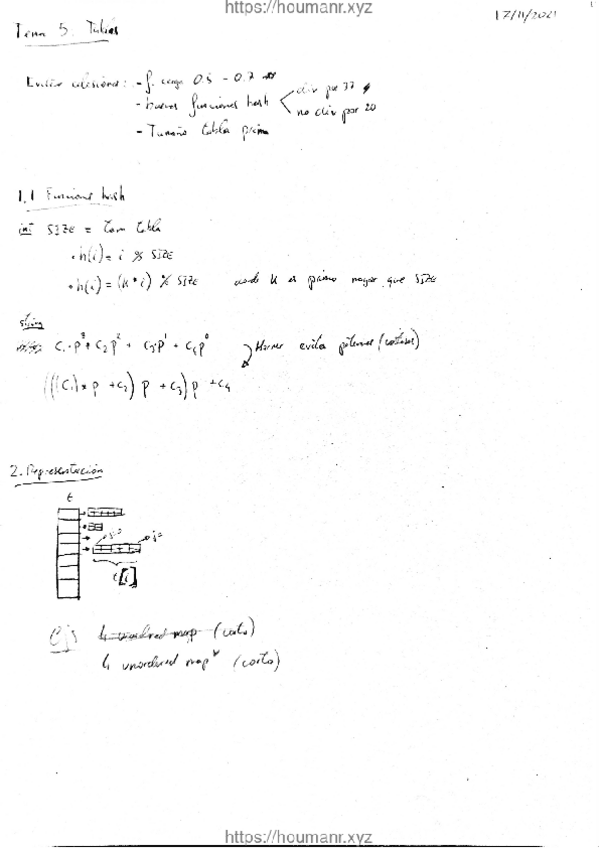 https://houmanr.xyz
17/11/2021
Tema 5. Tablas
Evitar colisiones: - f. carga 0.5 - 0.7
- buenas funciones hash
div por 37
no div por 20
- Tamaño tabla primo
1.1 Funciones hash
int SIZE = tam tabla
• h(i) = i % SIZE
• h(i) = (k * i) % SIZE
k es primo mayor que SIZE
string
C₁·p³ + C₂p² + C₃p¹ + C₄p⁰
Horner evita potencias (costosas)
(((C₁)* p + C₂) p + C₃) p + C₄
2. Representación
t
t[i]
↳ unordered map (corto)
↳ unordered map (corto)
https://houmanr.xyz